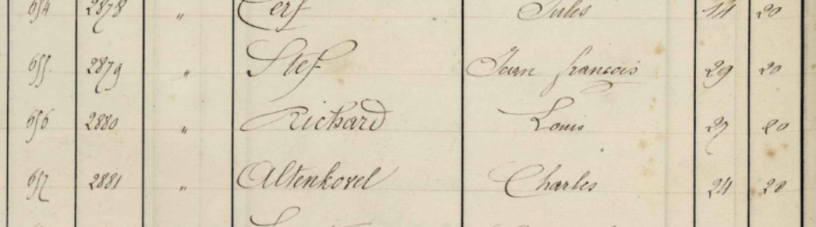 654 2878 " Cerf Jules 14 20
655. 2879 " Stef Jean françois 29 20
656 2880 " Richard Louis 27 20
657 2881 " Altenhovel Charles 24 20